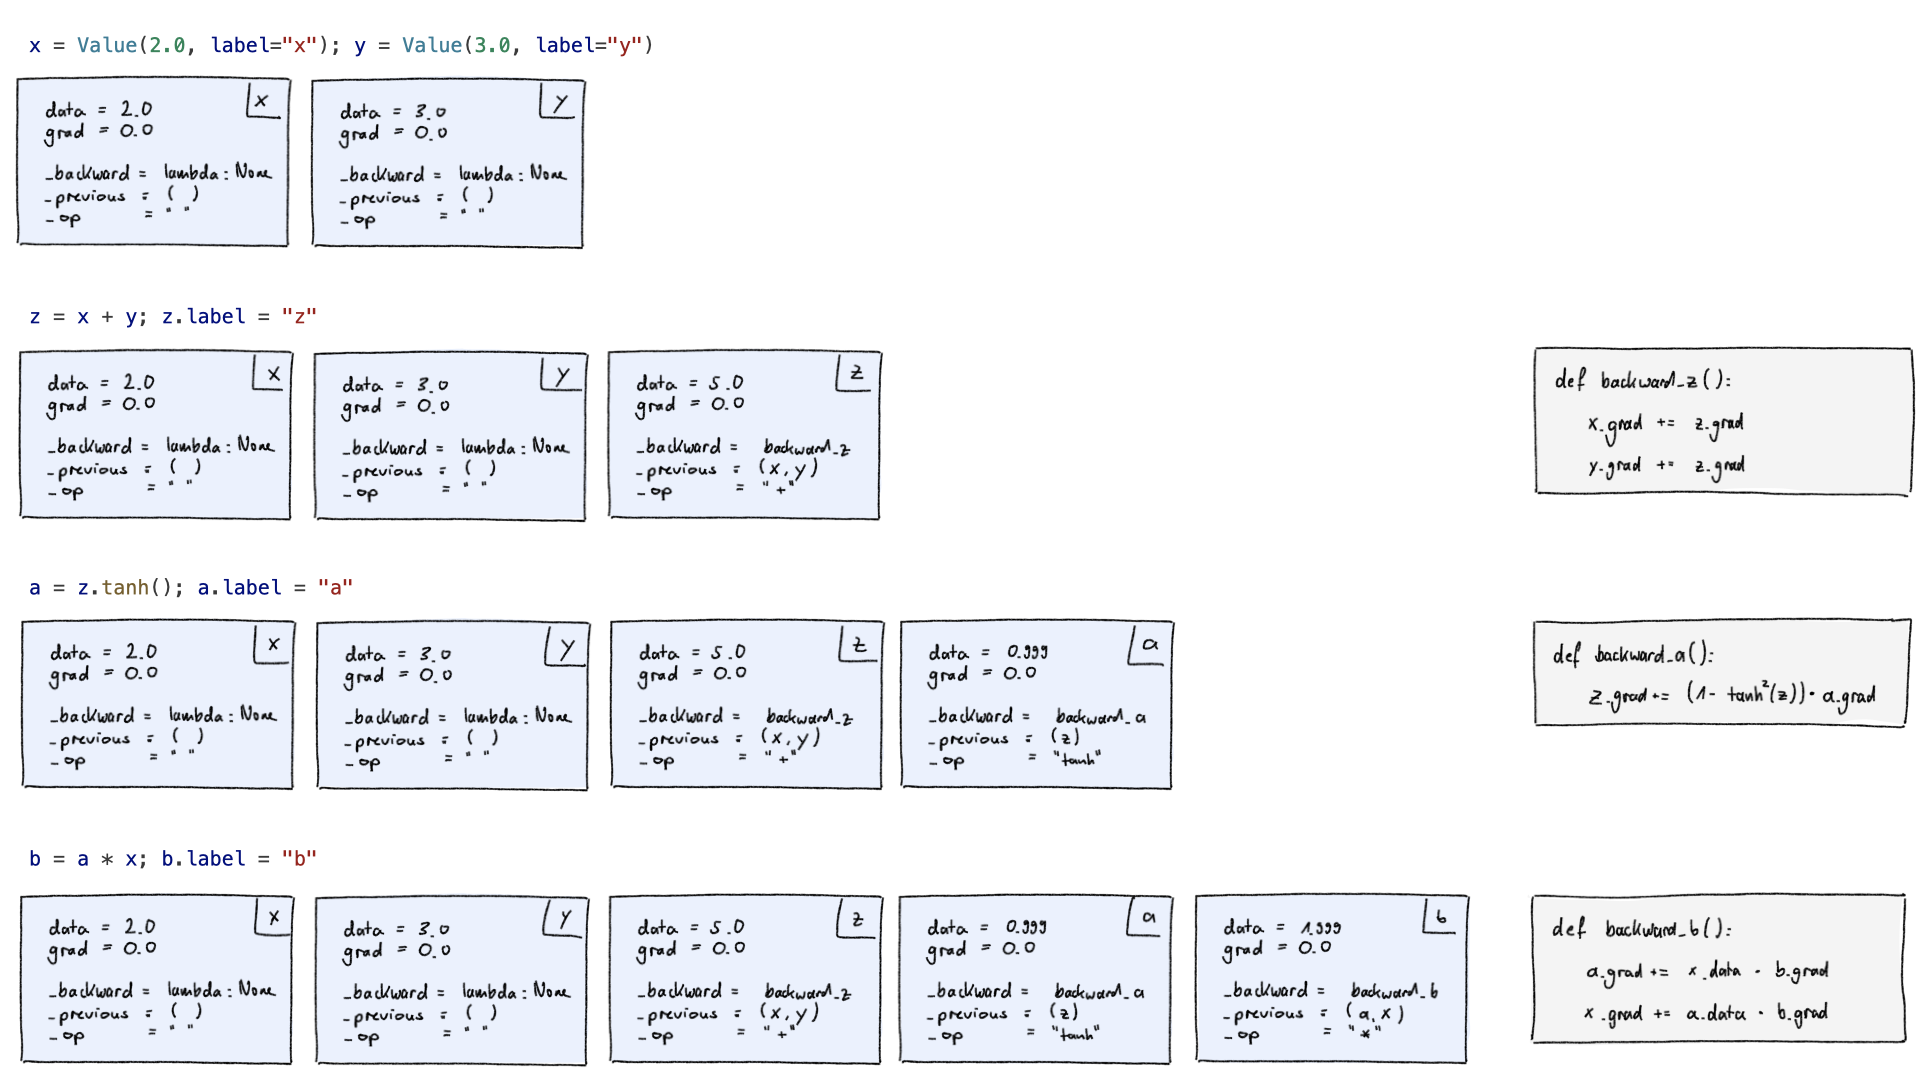 x = Value(2.0, label="x"); y = Value(3.0, label="y")
x
data = 2.0
grad = 0.0
_backward = lambda: None
_previous = ( )
_op = " "
y
data = 3.0
grad = 0.0
_backward = lambda: None
_previous = ( )
_op = " "
z = x + y; z.label = "z"
x
data = 2.0
grad = 0.0
_backward = lambda: None
_previous = ( )
_op = " "
y
data = 3.0
grad = 0.0
_backward = lambda: None
_previous = ( )
_op = " "
z
data = 5.0
grad = 0.0
_backward = backward_z
_previous = (x, y)
_op = "+"
def backward_z():
x.grad += z.grad
y.grad += z.grad
a = z.tanh(); a.label = "a"
x
data = 2.0
grad = 0.0
_backward = lambda: None
_previous = ( )
_op = " "
y
data = 3.0
grad = 0.0
_backward = lambda: None
_previous = ( )
_op = " "
z
data = 5.0
grad = 0.0
_backward = backward_z
_previous = (x, y)
_op = "+"
a
data = 0.999
grad = 0.0
_backward = backward_a
_previous = (z)
_op = "tanh"
def backward_a():
z.grad += (1 - tanh²(z)) · a.grad
b = a * x; b.label = "b"
x
data = 2.0
grad = 0.0
_backward = lambda: None
_previous = ( )
_op = " "
y
data = 3.0
grad = 0.0
_backward = lambda: None
_previous = ( )
_op = " "
z
data = 5.0
grad = 0.0
_backward = backward_z
_previous = (x, y)
_op = "+"
a
data = 0.999
grad = 0.0
_backward = backward_a
_previous = (z)
_op = "tanh"
b
data = 1.999
grad = 0.0
_backward = backward_b
_previous = (a, x)
_op = "*"
def backward_b():
a.grad += x.data · b.grad
x.grad += a.data · b.grad